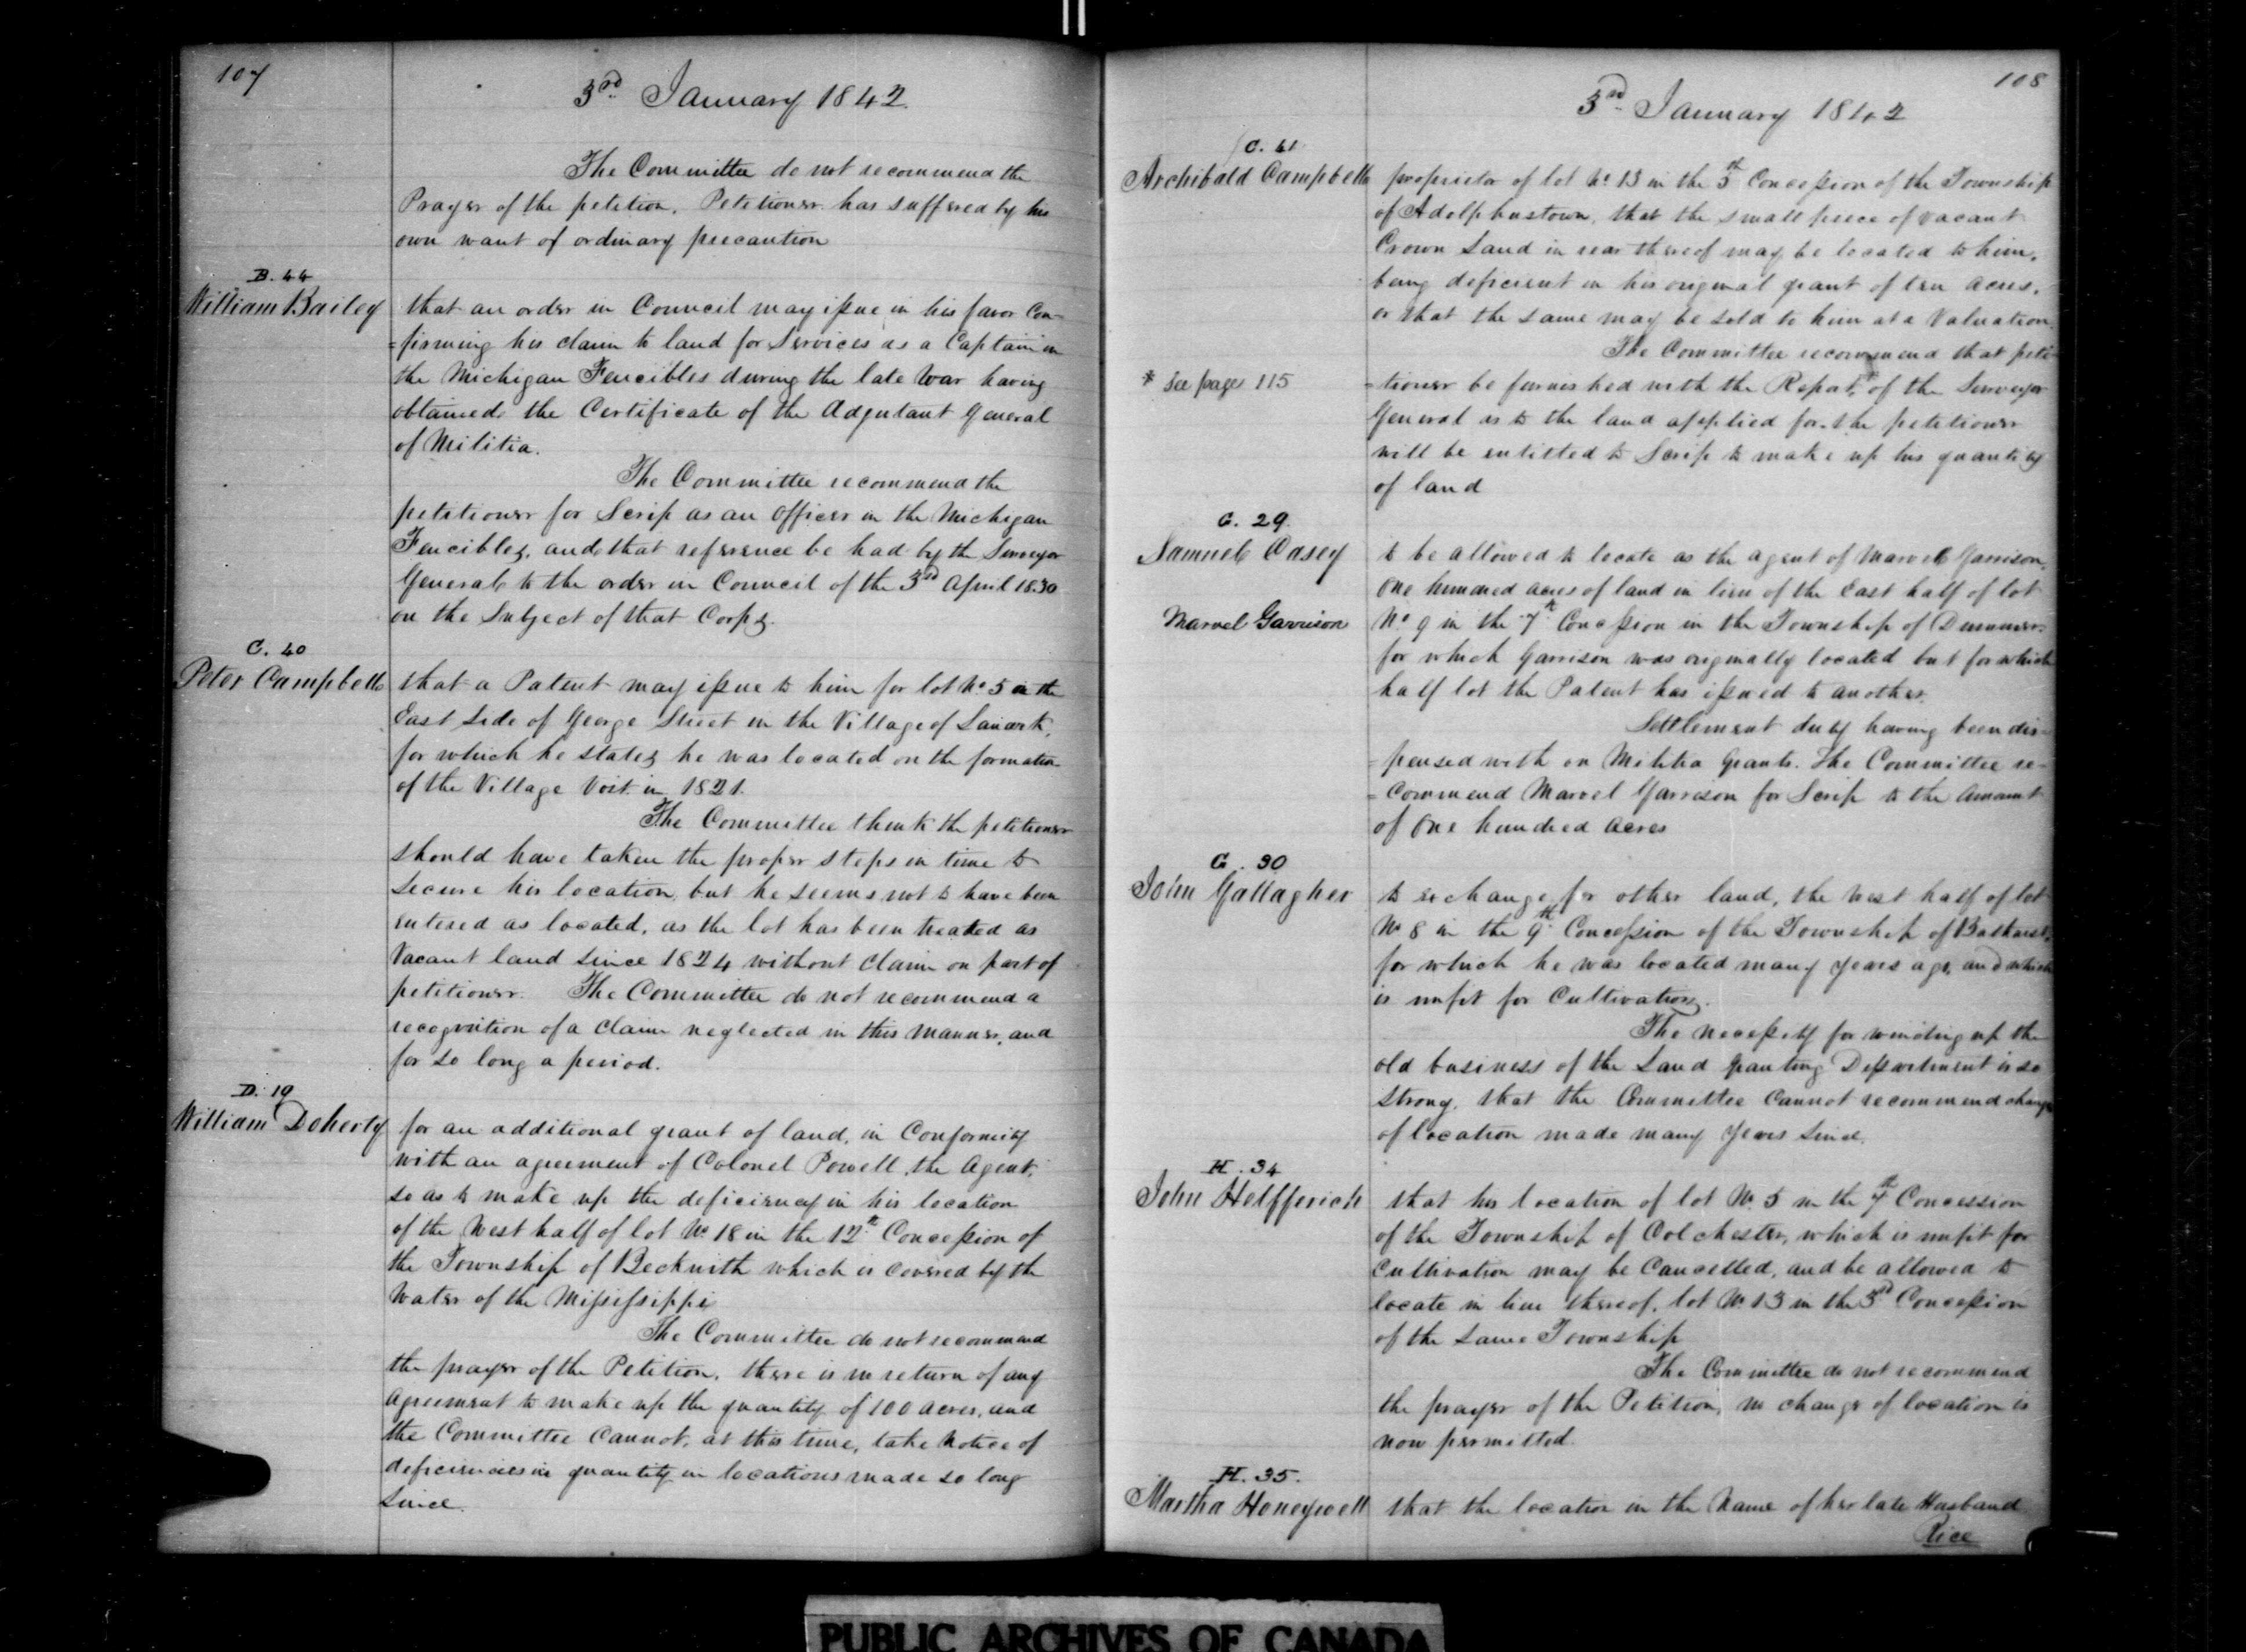 107
3rd January 1842.
The Committee do not recommend the
Prayer of the petition. Petitioner has suffered by his
own want of ordinary precaution
B. 44
William Bailey
that an order in Council may issue in his favor Con-
=firming his claim to land for Services as a Captain in
the Michigan Fencibles during the late War having
obtained the Certificate of the Adjutant General
of Militia.
The Committee recommend the
petitioner for Scrip as an Officer in the Michigan
Fencibles, and that reference be had by the Surveyor
General to the order in Council of the 3rd April 1830
on the Subject of that Corps.
C. 40
Peter Campbell
that a Patent may issue to him for lot No 5 in the
East Side of George Street in the Village of Lanark,
for which he states he was located on the formation
of the Village Vizt. in 1821.
The Committee think the petitioner
should have taken the proper steps in time to
secure his location, but he seems not to have been
entered as located, as the lot has been treated as
Vacant land since 1824 without claim on part of
petitioner. The Committee do not recommend a
recognition of a claim neglected in this manner, and
for so long a period.
D. 19
William Doherty
for an additional grant of land, in Conformity
with an agreement of Colonel Powell, the Agent,
so as to make up the deficiency in his location
of the West half of lot No 18 in the 12th Concession of
the Township of Beckwith which is covered by the
Water of the Missisippi
The Committee do not recommend
the prayer of the Petition, there is no return of any
agreement to make up the quantity of 100 acres, and
the Committee cannot, at this time, take Notice of
deficiencies in quantity in locations made so long
since.
108
3rd January 1842
C. 41
Archibald Campbell
proprietor of lot No 13 in the 5th Concession of the Township
of Adolphustown, that the small piece of vacant
Crown Land in rear thereof may be located to him,
being deficient in his original grant of ten acres,
or that the same may be sold to him at a Valuation.
The Committee recommend that peti-
* See pages 115
=tioner be furnished with the Report,* of the Surveyor
General as to the land applied for. the petitioner
will be entitled to Scrip to make up his quantity
of land
G. 29.
Samuel Casey
to be allowed to locate as the agent of Marvel Garrison,
One hundred acres of land in lieu of the East half of lot
Marvel Garrison
No 9 in the 7th Concession in the Township of Dummer.
for which Garrison was originally located but for which
half lot the Patent has issued to another.
Settlement duty having been dis-
=pensed with on Militia Grants. The Committee re-
=commend Marvel Garrison for Scrip to the Amount
of One hundred Acres
G. 30
John Gallagher
to exchange for other land, the West half of lot
No 8 in the 9th Concession of the Township of Bathurst,
for which he was located many years ago, and which
is unfit for Cultivation.
The necessity for winding up the
old business of the Land Granting Department is so
strong, that the Committee cannot recommend change
of location made many years since.
H. 34
John Helfferich
that his location of lot No 5 in the 7th Concession
of the Township of Colchester, which is unfit for
Cultivation may be Cancelled, and be allowed to
locate in lieu thereof, lot No 13 in the 3rd Concession
of the same Township
The Committee do not recommend
the prayer of the Petition, no change of location is
now permitted.
H. 35.
Martha Honeywell
that the location in the Name of her late Husband
Rice
PUBLIC ARCHIVES OF CANADA